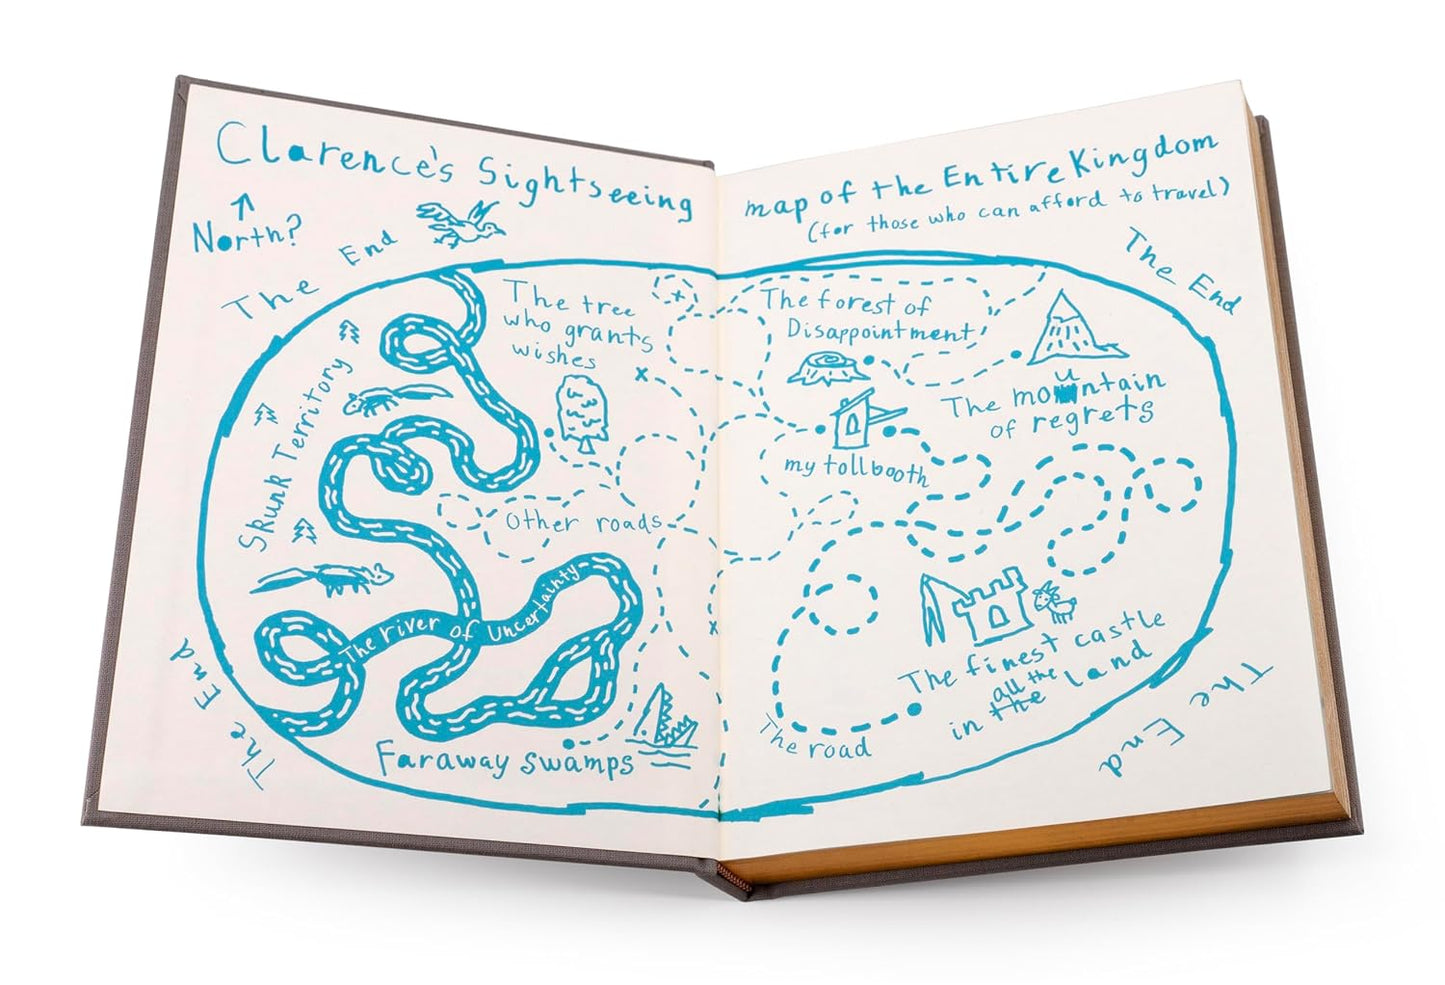 Clarence's Sightseeing map of the Entire Kingdom
(for those who can afford to travel)
North?
The End
The End
The tree
who grants
wishes
The forest of
Disappointment
The mountain
of regrets
Skunk Territory
my tollbooth
Other roads
The river of Uncertainty
The finest castle
all the
in the land
The road
Faraway swamps
The End
The End